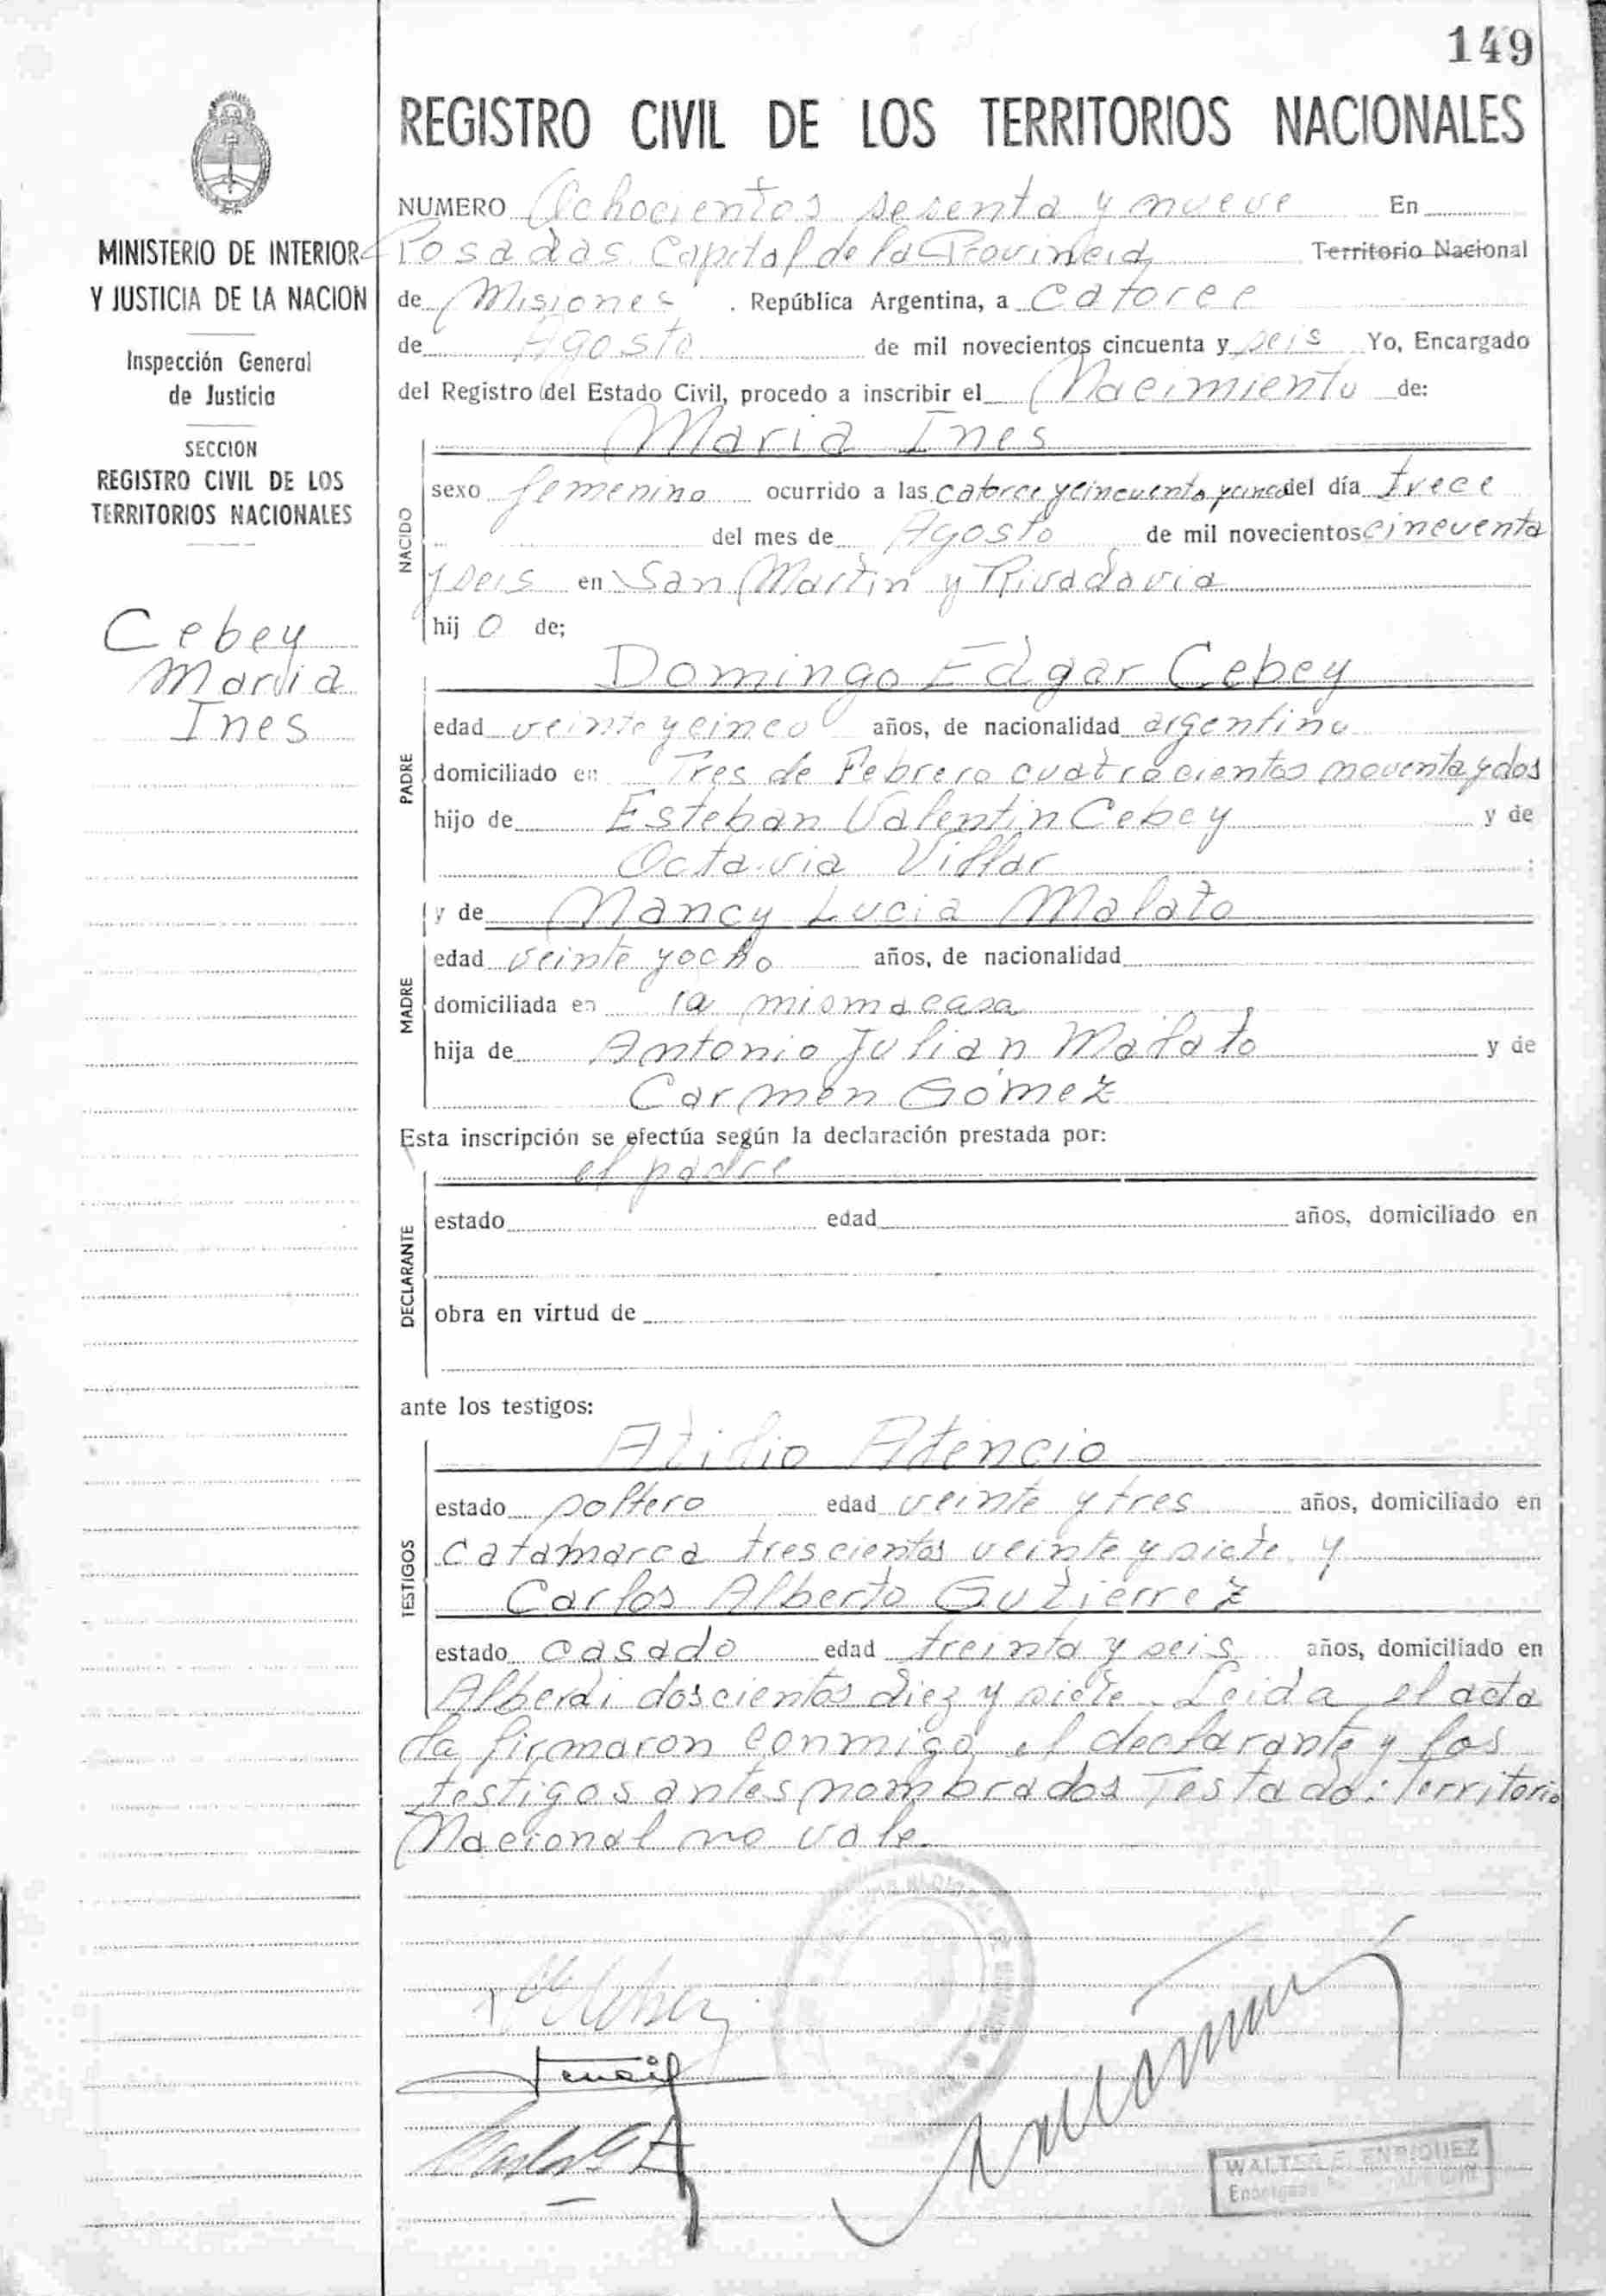 149
REGISTRO CIVIL DE LOS TERRITORIOS NACIONALES
MINISTERIO DE INTERIOR
Y JUSTICIA DE LA NACION
Inspección General
de Justicia
SECCION
REGISTRO CIVIL DE LOS
TERRITORIOS NACIONALES
Cebey
Maria
Ines
NUMERO Ochocientos sesenta y nueve En
Posadas Capital de la Provincia Territorio Nacional
de Misiones . República Argentina, a catorce
de Agosto de mil novecientos cincuenta y seis Yo, Encargado
del Registro del Estado Civil, procedo a inscribir el Nacimiento de:
NACIDO
Maria Ines
sexo femenino ocurrido a las catorce y cincuenta y cinco del día trece
del mes de Agosto de mil novecientos cincuenta
y seis en San Martin y Rivadavia
hij o de;
PADRE
Domingo Edgar Cebey
edad veinte y cinco años, de nacionalidad argentina
domiciliado en Tres de Febrero cuatrocientos noventa y dos
hijo de Esteban Valentin Cebey y de
Octavia Villar
MADRE
y de Nancy Lucia Malato
edad veinte y ocho años, de nacionalidad
domiciliada en la misma casa
hija de Antonio Julian Malato y de
Carmen Gómez
Esta inscripción se efectúa según la declaración prestada por:
el padre
DECLARANTE
estado edad años, domiciliado en
obra en virtud de
ante los testigos:
TESTIGOS
Atilio Atencio
estado soltero edad veinte y tres años, domiciliado en
Catamarca trescientos veinte y siete y
Carlos Alberto Gutierrez
estado casado edad treinta y seis años, domiciliado en
Alberdi doscientos diez y siete. Leida el acta
la firmaron conmigo el declarante y los
testigos antes nombrados Testado: Territorio
Nacional no vale.
WALTER E. ENRIQUEZ